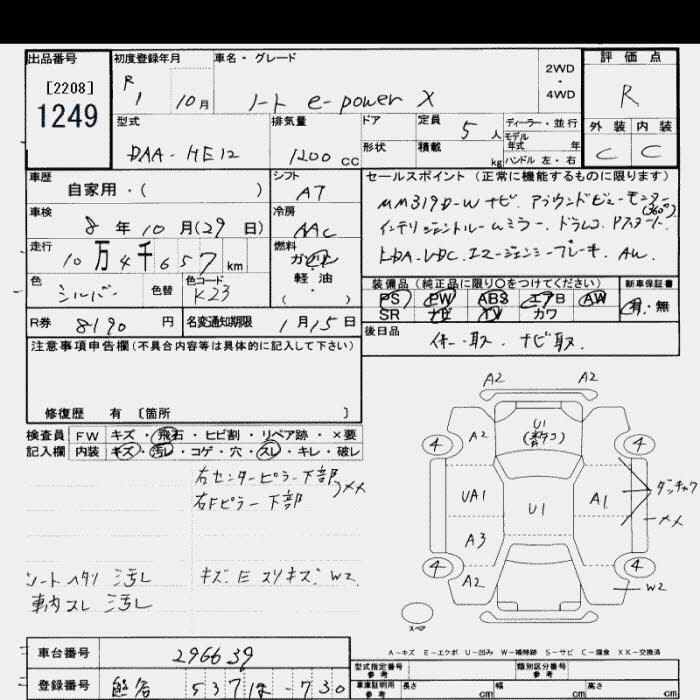 出品番号
[2208]
1249
初度登録年月
R
1 10月
車名・グレード
ノート e-power X
2WD
・
4WD
評価点
R
外装 内装
C C
型式
DAA-HE12
排気量
1200 CC
ドア
形状
定員 5 人
積載 kg
ディーラー・並行
モデル
年式 年
ハンドル 左・右
車歴
自家用・( )
シフト
AT
車検
8 年 10 月(29 日)
冷房
AAC
走行
10万4千657 km
燃料
ガソリン
軽・油
( )
色
シルバー
色替
色コード
K23
R券 8190 円
名変通知期限 1月15日
セールスポイント (正常に機能するものに限ります)
MM319D-W ナビ. アラウンドビューモニター(360°)
インテリジェントルームミラー. ドラレコ. Pスタート.
LDA・VDC. エマージェンシーブレーキ. AW.
装備品 (純正品に限り○をつけてください)
新車保証書
PS PW ABS エアB AW
SR ナビ TV カワ
有・無
後日品
保・取. ナビ取.
注意事項申告欄(不具合内容等は具体的に記入して下さい)
修復歴 有 〔箇所 〕
検査員
記入欄
FW キズ・飛石・ヒビ割・リペア跡・×要
内装 キズ・汚レ・コゲ・穴・スレ・キレ・破レ
右センターピラー下部
右Fピラー下部
メメ
シートヘタリ 汚レ
車内スレ 汚レ
キズ E スリキズ W2
A2 A2
A2
U1
4 4
UA1
U1
A1
ダッチャク
メメ
A3
4 4
A2
W2
スペア
A-キズ E-エクボ U-凹み W-補修跡 S-サビ C-腐食 XX-交換済
車台番号 296639
登録番号 熊谷 537 は -730
型式指定番号
参考
類別区分番号
参考
車庫証明用
参考
長さ cm 幅 cm 高さ cm